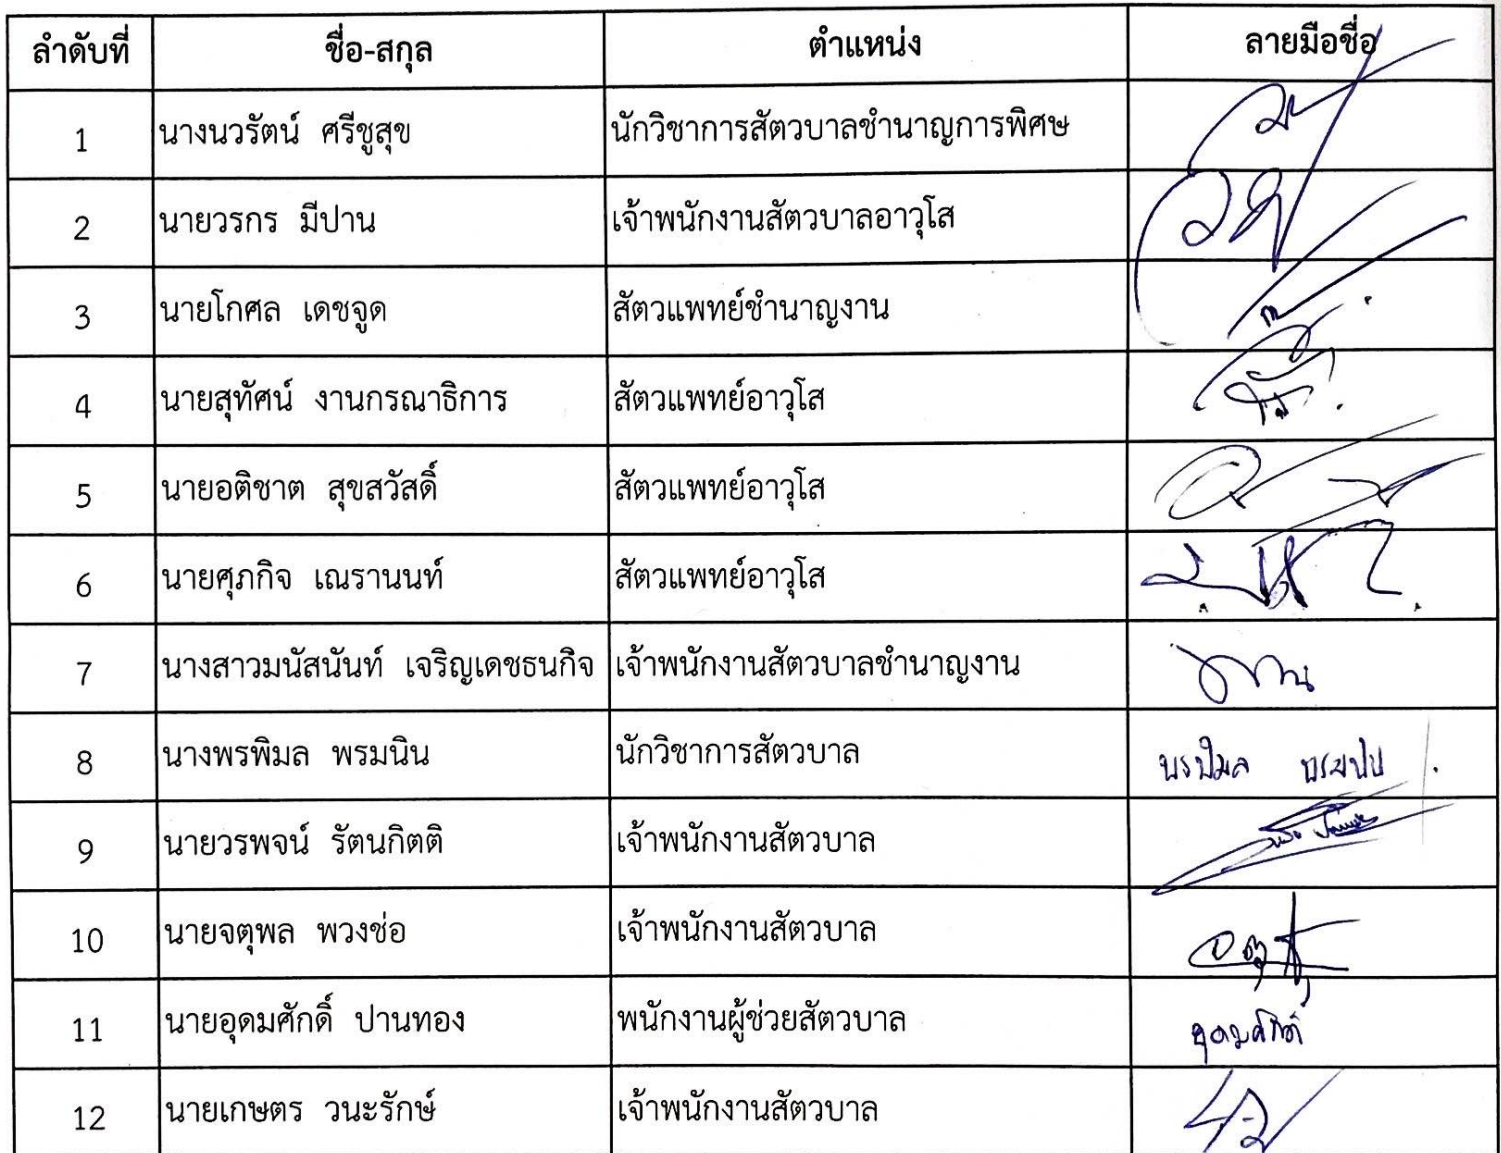 ลำดับที่ ชื่อ-สกุล ตำแหน่ง ลายมือชื่อ
1 นางนวรัตน์ ศรีชูสุข นักวิชาการสัตวบาลชำนาญการพิศษ
2 นายวรกร มีปาน เจ้าพนักงานสัตวบาลอาวุโส
3 นายโกศล เดชจูด สัตวแพทย์ชำนาญงาน
4 นายสุทัศน์ งานกรณาธิการ สัตวแพทย์อาวุโส
5 นายอติชาต สุขสวัสดิ์ สัตวแพทย์อาวุโส
6 นายศุภกิจ เณรานนท์ สัตวแพทย์อาวุโส
7 นางสาวมนัสนันท์ เจริญเดชธนกิจ เจ้าพนักงานสัตวบาลชำนาญงาน
8 นางพรพิมล พรมนิน นักวิชาการสัตวบาล พรพิมล พรมนิน
9 นายวรพจน์ รัตนกิตติ เจ้าพนักงานสัตวบาล
10 นายจตุพล พวงช่อ เจ้าพนักงานสัตวบาล
11 นายอุดมศักดิ์ ปานทอง พนักงานผู้ช่วยสัตวบาล อุดมศักดิ์
12 นายเกษตร วนะรักษ์ เจ้าพนักงานสัตวบาล